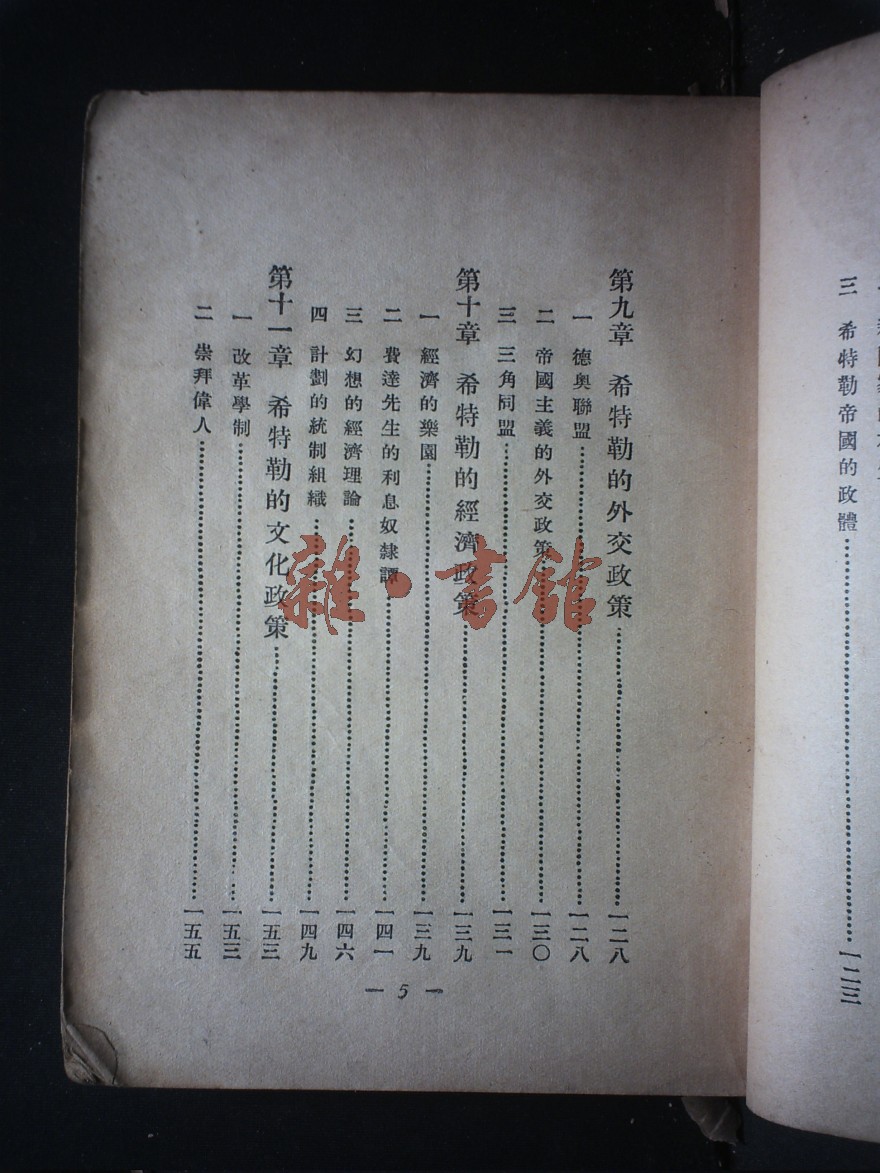 三　希特勒帝國的政體……一二三
第九章　希特勒的外交政策……一二八
一　德奥聯盟……一二八
二　帝國主義的外交政策……一三〇
三　三角同盟……一三一
第十章　希特勒的經濟政策……一三九
一　經濟的樂園……一三九
二　費達先生的利息奴隸譚……一四一
三　幻想的經濟理論……一四六
四　計劃的統制組織……一四九
第十一章　希特勒的文化政策……一五三
一　改革學制……一五三
二　崇拜偉人……一五五
— 5 —
雜·書館